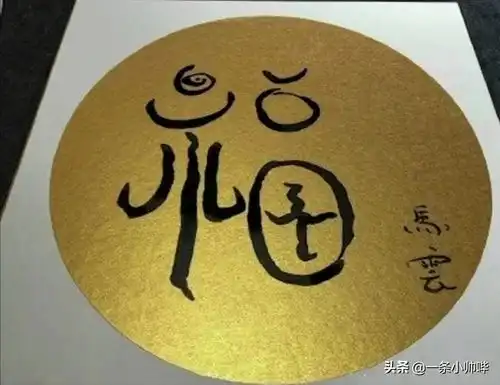 福
馬雲
头条 @一条小帅哗